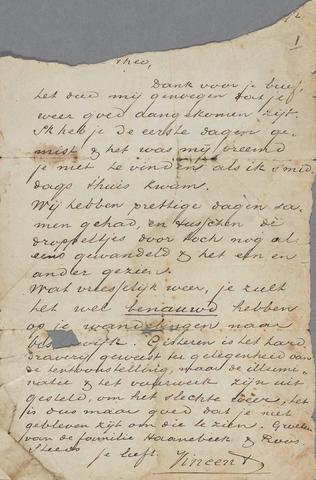 1
Theo,
Dank voor je brief,
het deed mij genoegen dat je
weer goed aangekomen zijt.
Ik heb je de eerste dagen ge-
mist & het was mij vreemd
je niet te vinden als ik s'mid-
dags thuis kwam.
Wij hebben prettige dagen sa-
men gehad, en tusschen de
droppeltjes door toch nog al
eens gewandeld & het een en
ander gezien.
Wat vreeselijk weer, je zult
het wel benauwd hebben
op je wandelingen naar
Gisteren is het hard-
draverij geweest ter gelegenheid van
de tentoonstelling, maar de illumi-
natie & het vuurwerk zijn uit-
gesteld, om het slechte weer, het
is dus maar goed dat je niet
gebleven zijt om die te zien. Groeten
van de familie Haanebeek & Roos.
Steeds
je liefh.
Vincent